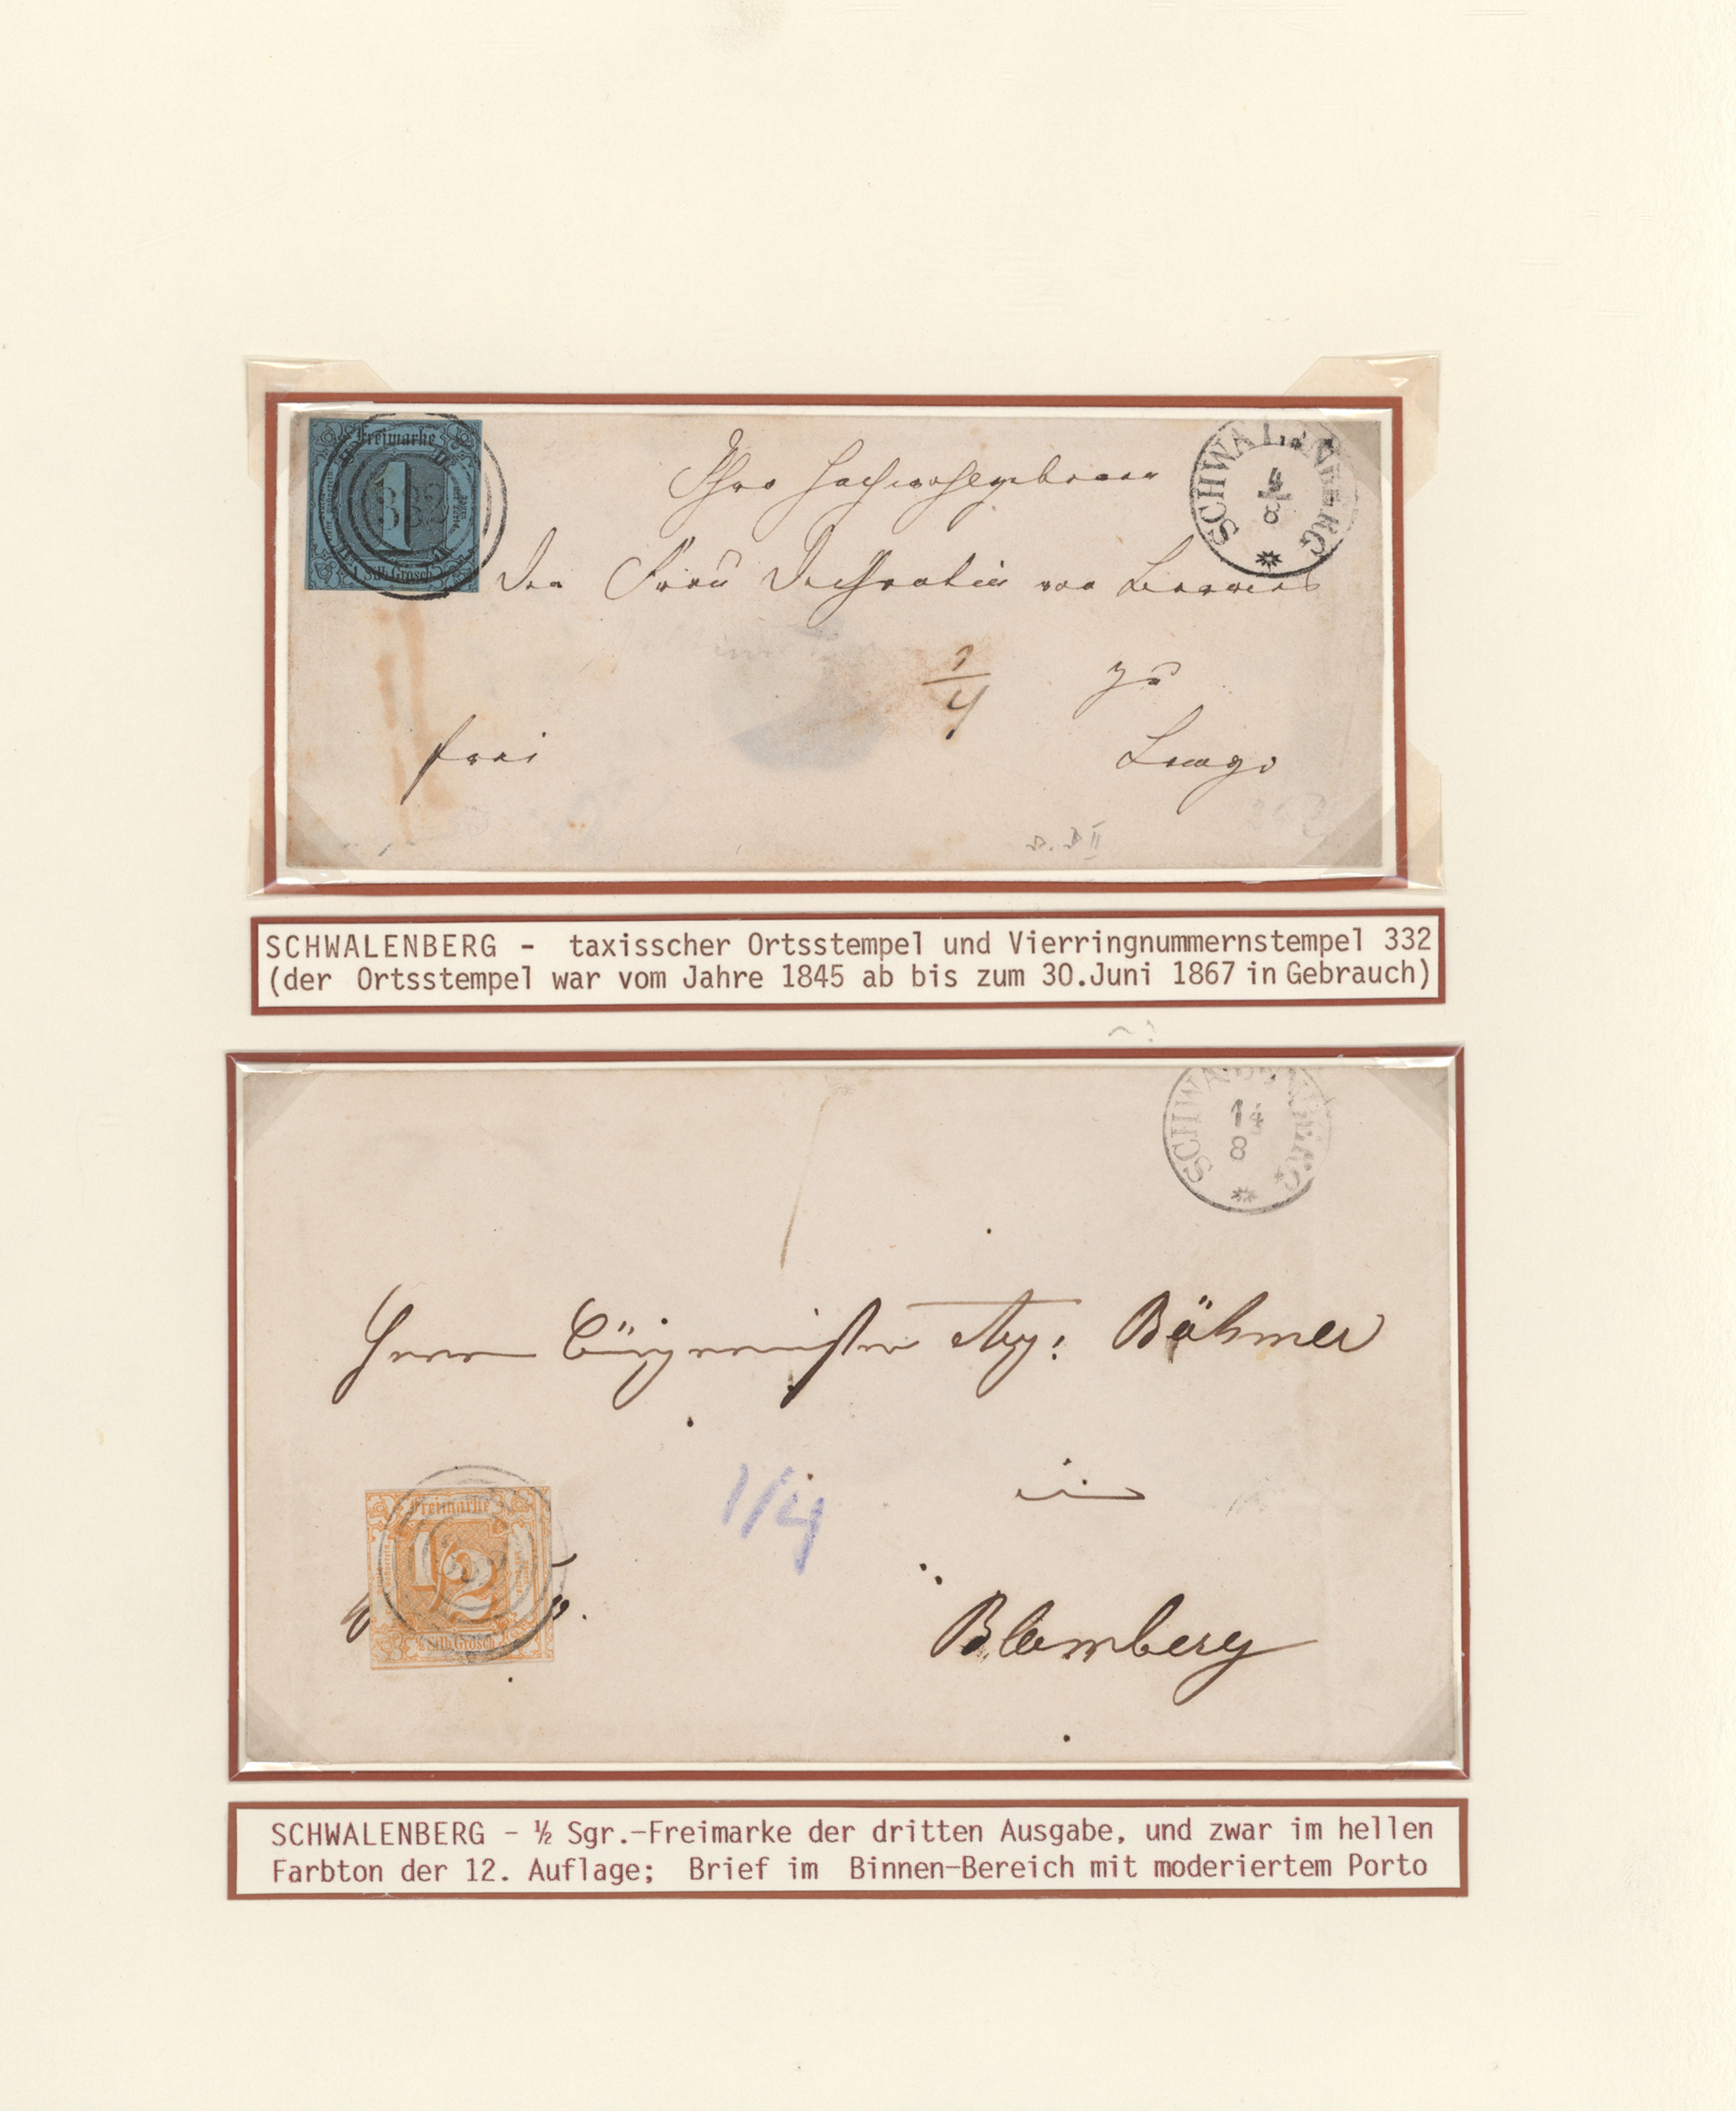 Freimarke
1
332
1 Silb.Grosch.
SCHWALENBERG
4
8
Ihro Hochwohlgeboren
der Frau von
1/4
zu
frei
Lemgo
SCHWALENBERG - taxisscher Ortsstempel und Vierringnummernstempel 332
(der Ortsstempel war vom Jahre 1845 ab bis zum 30.Juni 1867 in Gebrauch)
SCHWALENBERG
14
8
Herrn Bürgermeister Böhmer
1/4
in
Freimarke
1/2
½ Silb.Grosch.
Blomberg
SCHWALENBERG - ½ Sgr.-Freimarke der dritten Ausgabe, und zwar im hellen
Farbton der 12. Auflage; Brief im Binnen-Bereich mit moderiertem Porto